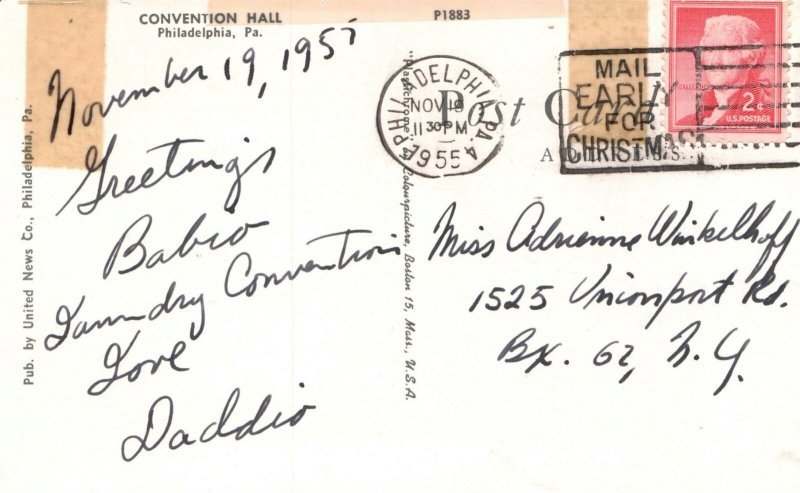 CONVENTION HALL
Philadelphia, Pa.
P1883
November 19, 1955
Greetings
Babio
Laundry Convention
Love
Daddio
Pub. by United News Co., Philadelphia, Pa.
"Plastichrome" by Colourpicture, Boston 15, Mass., U.S.A.
PHILADELPHIA, PA.
NOV 19
11 30 PM
1955
4
MAIL
EARLY
FOR
CHRISTMAS
Post Card
ADDRESS
2¢
U.S. POSTAGE
Miss Adrienne Winkelhoff
1525 Unionport Rd.
Bx. 62, N.Y.